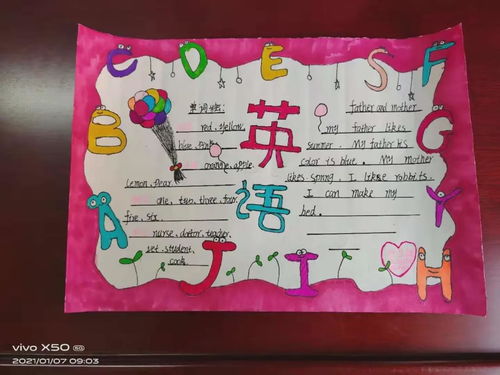 C D E S F
B
G
A
Y
J I H
英
语
单词
red, yellow,
blue, pink
orange, apple,
lemon, pear
one, two, three, four,
five, six.
nurse, doctor, teacher,
vet, student,
cook.
father and mother
my father likes
summer. My father is
color is blue. My mother
likes spring. I like rabbits.
I can make my
bed.
vivo X50 5G
2021/01/07 09:03